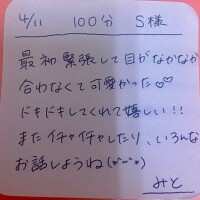 4/11 100分 S様
最初緊張して目がなかなか
合わなくて可愛かった♡♡
ドキドキしてくれて嬉しい!!
またイチャイチャしたり、いろんな
お話しようね(*˘︶˘*)
みと